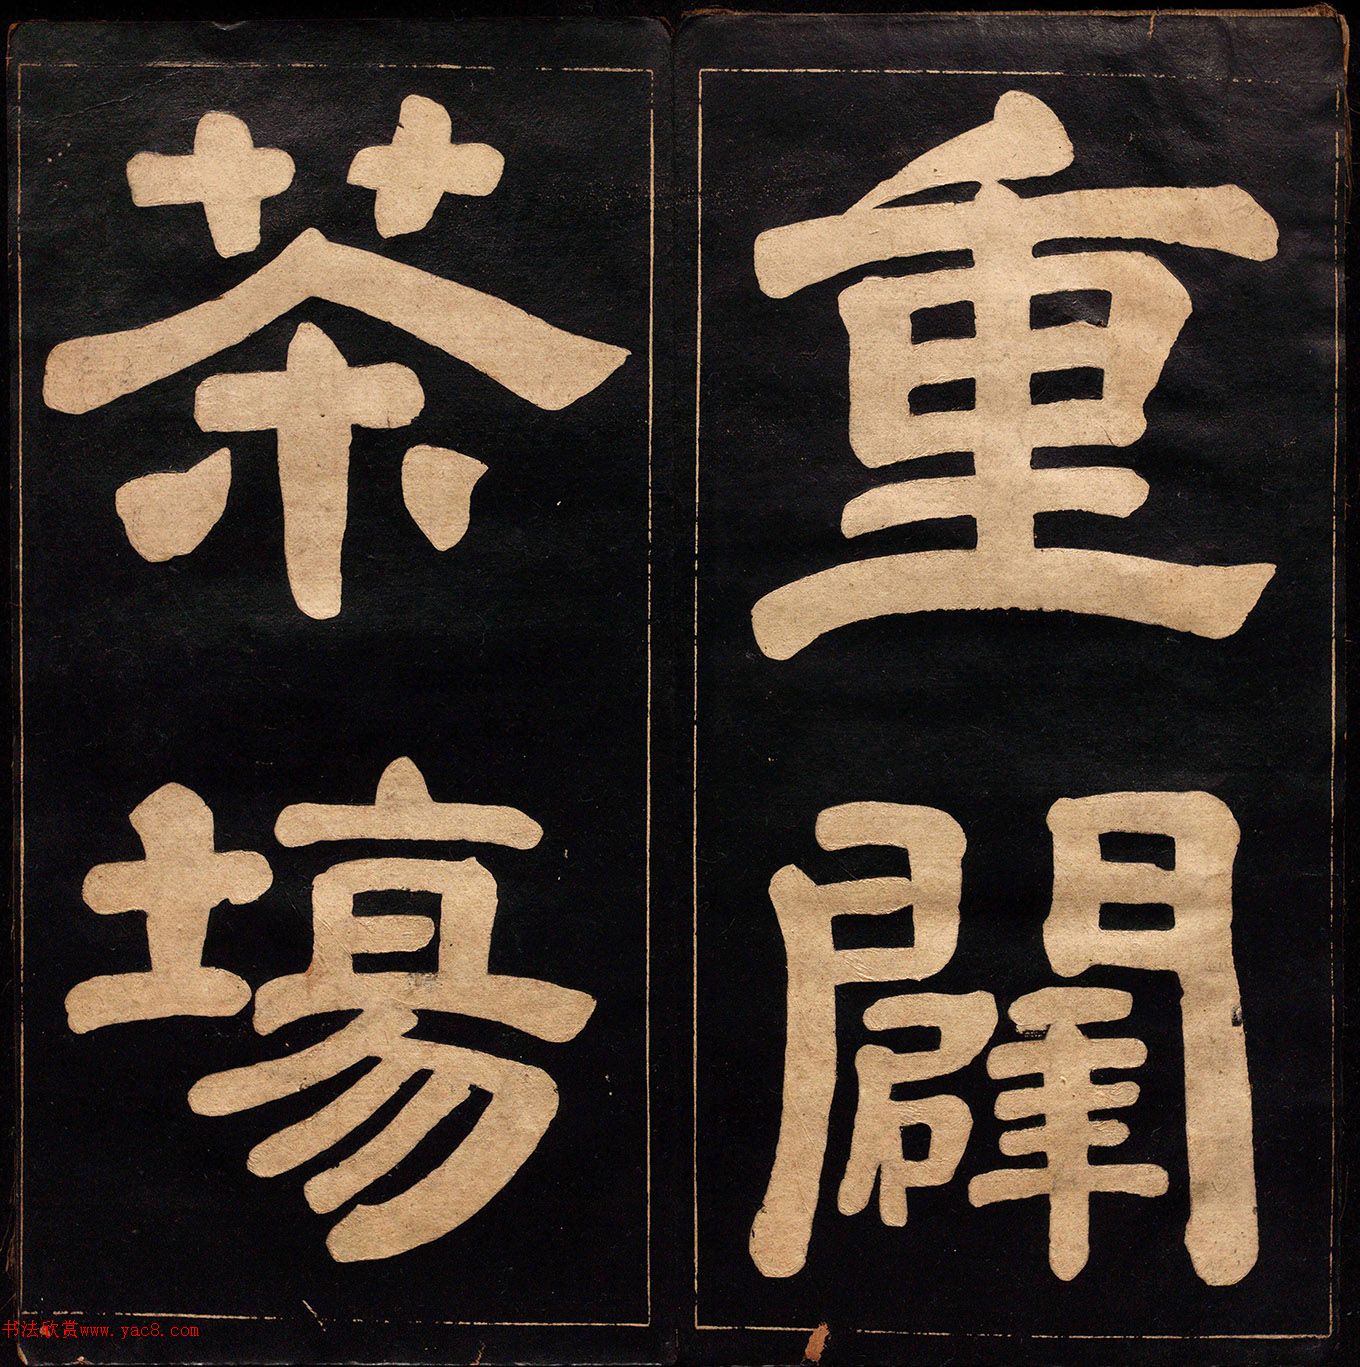 重闢
茶場
书法欣赏www.yac8.com